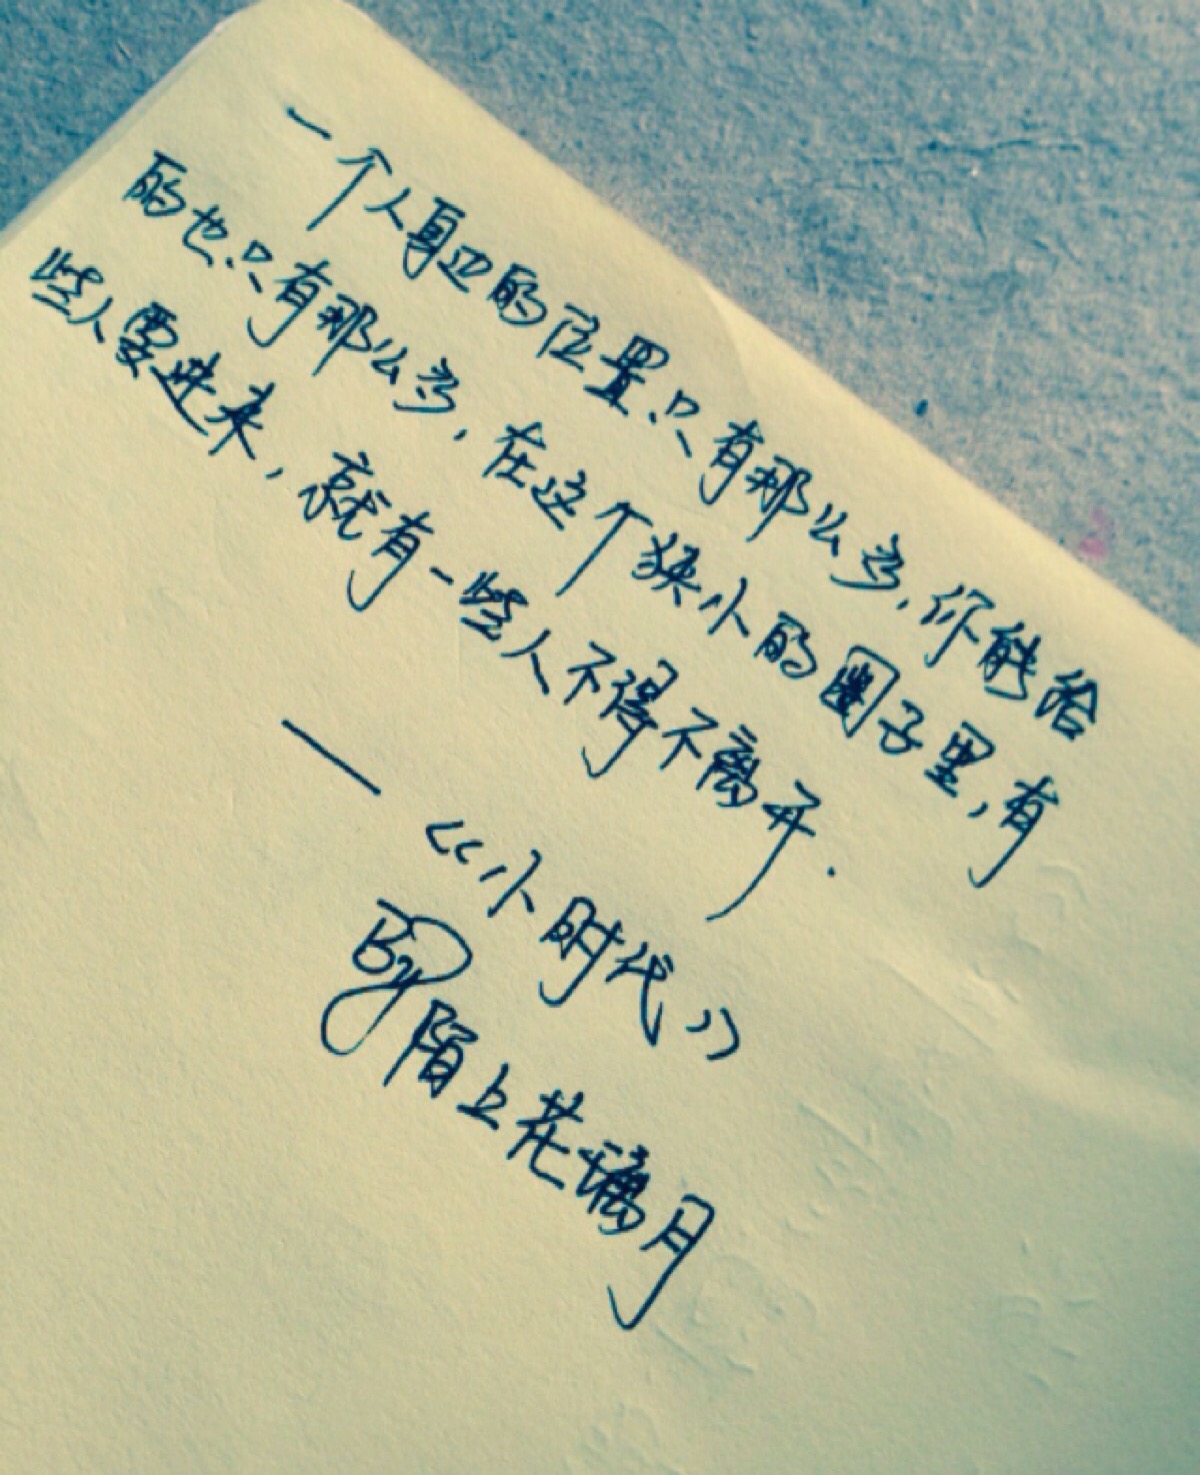 一个人身边的位置只有那么多,你能给
的也只有那么多,在这个狭小的圈子里,有
些人要进来,就有一些人不得不离开.
—《小时代》
By陌上花璃月